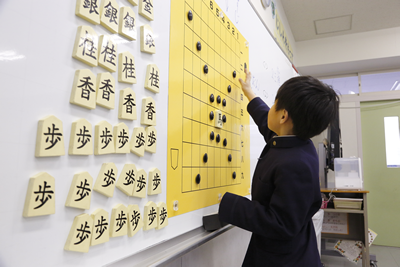 銀 銀 銀
桂 桂 桂 桂
香 香 香 香
歩 歩 歩 歩 歩 歩
歩 歩 歩 歩 歩 歩
歩 歩 歩 歩 歩 歩